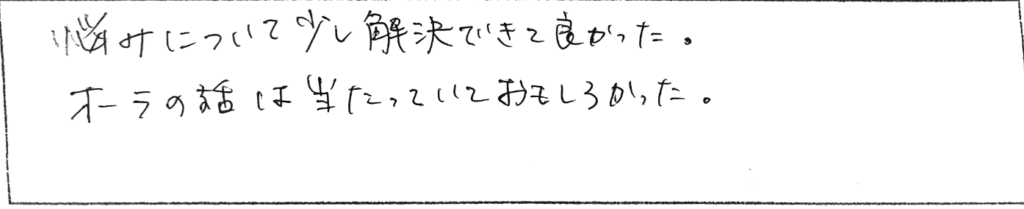 悩みについて少し解決できて良かった。
オーラの話は当たっていておもしろかった。